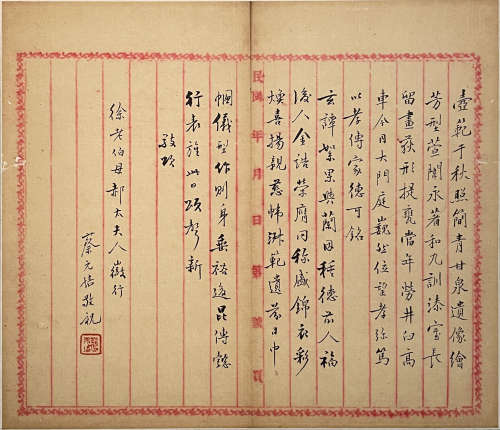 壺範千秋照簡青甘泉遺像繪
芳型萱閣永著和丸訓漆室長
留畫荻形提甕當年勞井臼高
車今日大門庭巍然位望孝彌篤
以孝傳家德可銘
玄譚絮果與蘭因種德前人福
後人金誥榮膺同稱盛錦衣彩
煥喜揚親慈幃淑範遺芬日巾
民國 年 月 日 第 號 頁
幗儀型作則身垂裕後昆傳懿
行表旌此日頌聲新
敬頌
徐老伯母郝太夫人徽行
蔡元敬祝